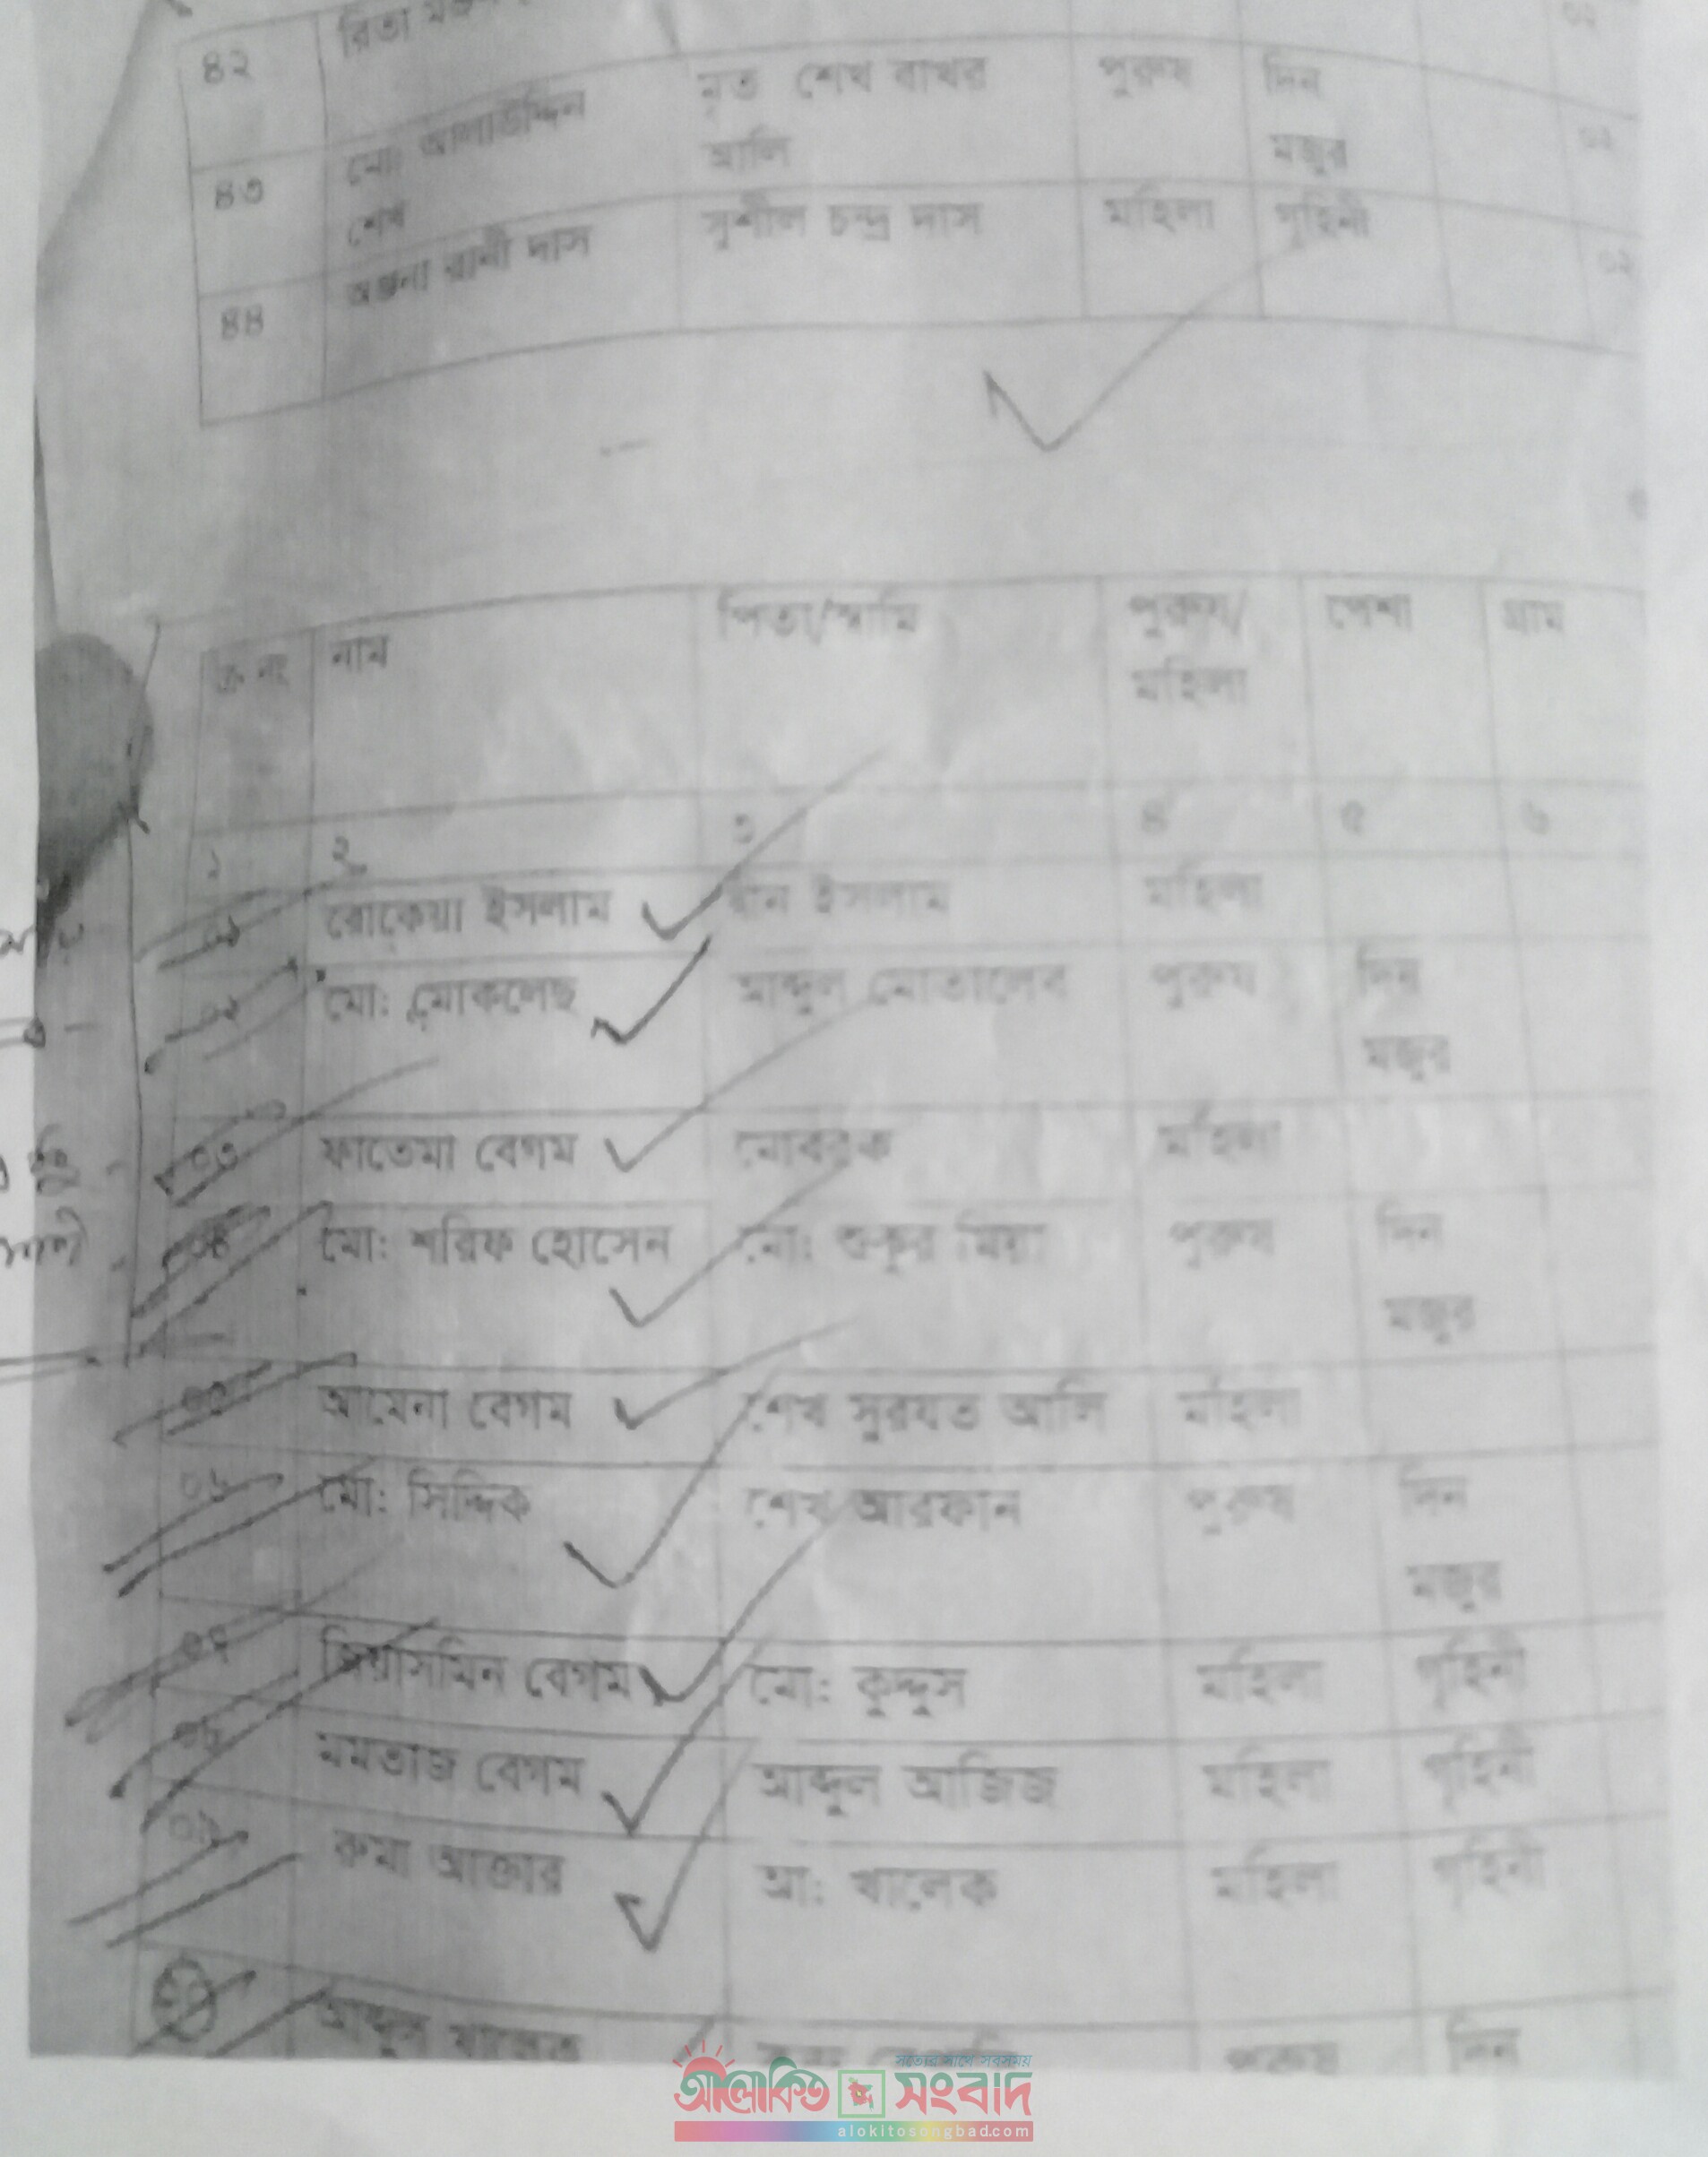 ৪২ রিতা ০২
৪৩ মো: আলাউদ্দিন মৃত শেখ বাখর পুরুষ দিন ০২
শেখ আলি মজুর
৪৪ অঞ্জনা রানী দাস সুশীল চন্দ্র দাস মহিলা গৃহিনী ০২
ক্র নং নাম পিতা/স্বামি পুরুষ/ পেশা গ্রাম
মহিলা
১ ২ ৩ ৪ ৫ ৬
০১ রোকেয়া ইসলাম ইসলাম মহিলা
০২ মো: মোকলেছ আব্দুল মোতালেব পুরুষ দিন
মজুর
০৩ ফাতেমা বেগম মোবরক মহিলা
০৪ মো: শরিফ হোসেন মো: শুকুর মিয়া পুরুষ দিন
মজুর
০৫ আমেনা বেগম শেখ সুরযত আলি মহিলা
০৬ মো: সিদ্দিক শেখ আরফান পুরুষ দিন
মজুর
০৭ বেগম মো: কুদ্দুস মহিলা গৃহিনী
০৮ মমতাজ বেগম আব্দুল আজিজ মহিলা গৃহিনী
০৯ রুমা আক্তার আ: খালেক মহিলা গৃহিনী
১০ আব্দুল খালেক পুরুষ দিন
সত্যের সাথে সবসময়
আলোকিত সংবাদ
alokitosongbad.com